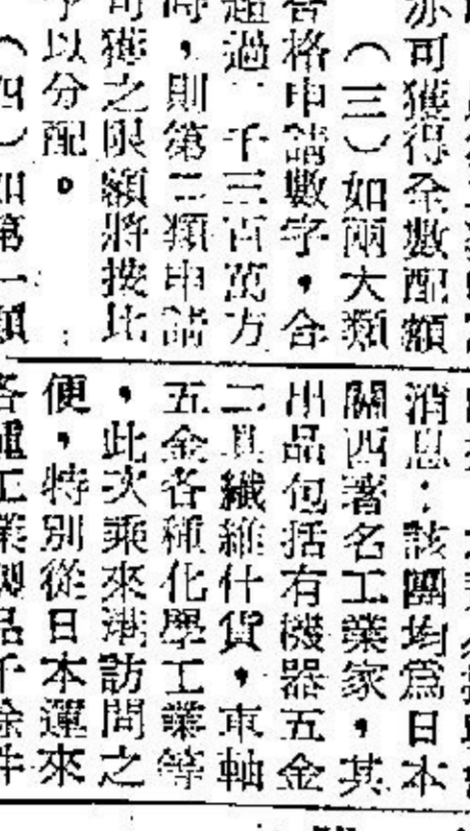 亦可獲得全數配額
（三）如兩大類
合格申請數字，合
超過二千三百萬方
時，則第二類申請
可獲之限額將按比
予以分配。
（四）如第一類
消息：該團均為日本
關西著名工業家，其
出品包括有機器五金
工具纖維什貨，車軸
五金各種化學工業等
，此次乘來港訪問之
便，特別從日本運來
各種工業製品千餘件